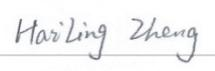 HaiLing Zheng